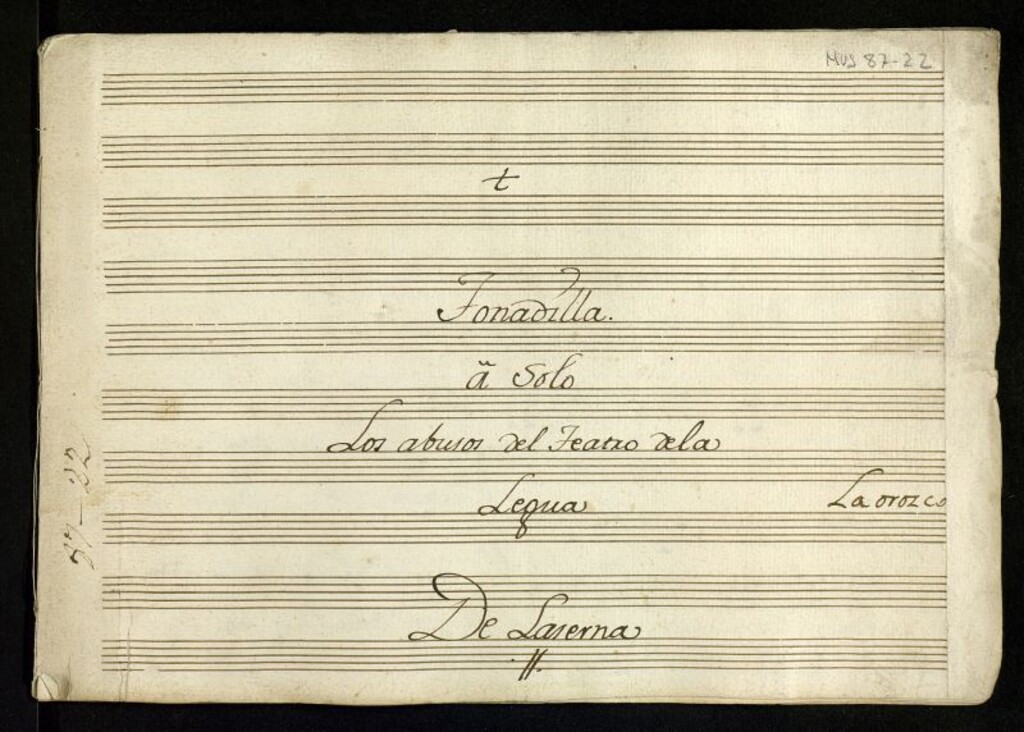 MUS 87-22
t
Tonadilla.
ã Solo
Los abusos del Teatro dela
Legua
La orozco
De Laserna
87-22